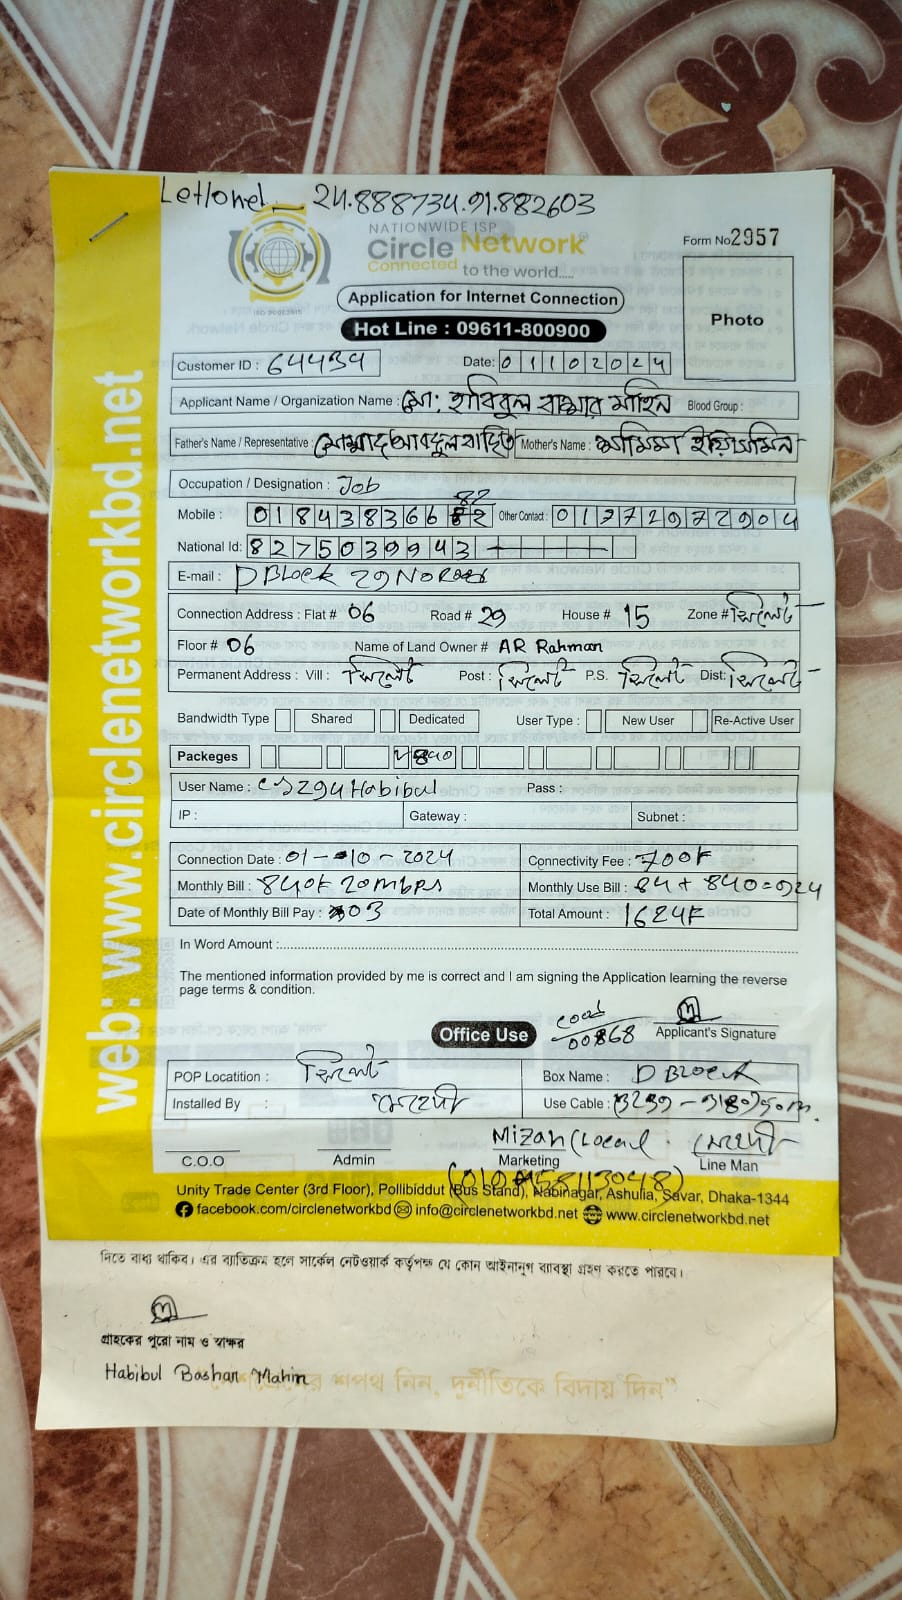 Letlonel 24.888734.91.882603
NATIONWIDE ISP
Circle Network
Connected to the world.....
Form No 2957
Application for Internet Connection
Photo
Hot Line : 09611-800900
Customer ID : 64439 Date: 01102024
Applicant Name / Organization Name : মো: হাবিবুল বাসার মাহিন Blood Group :
Father's Name / Representative : Mother's Name : ইয়াসমিন
Occupation / Designation : Job
82
Mobile : 018438366 Other Contact : 01772972904
National Id: 8275039943
E-mail : D Block 29 No Road
Connection Address : Flat # 06 Road # 29 House # 15 Zone # সিলেট
Floor # 06 Name of Land Owner # AR Rahman
Permanent Address : Vill : সিলেট Post : সিলেট P.S. সিলেট Dist: সিলেট
Bandwidth Type Shared Dedicated User Type : New User Re-Active User
Packeges 840
User Name : Habibul Pass :
IP : Gateway : Subnet :
Connection Date : 01-10-2024 Connectivity Fee : 700৳
Monthly Bill : 840৳ 20mbps Monthly Use Bill : 84 + 840 = 924
Date of Monthly Bill Pay : 03 Total Amount : 1624৳
In Word Amount :
The mentioned information provided by me is correct and I am signing the Application learning the reverse
page terms & condition.
Office Use
00868
Applicant's Signature
POP Locatition : সিলেট Box Name : D Block
Installed By : মেহেদী Use Cable :
Mizan (Local মেহেদী
C.O.O Admin Marketing Line Man
Unity Trade Center (3rd Floor), Pollibiddut (Bus Stand), Nabinagar, Ashulia, Savar, Dhaka-1344
facebook.com/circlenetworkbd info@circlenetworkbd.net www.circlenetworkbd.net
web: www.circlenetworkbd.net
দিতে বাধ্য থাকিব। এর ব্যতিক্রম হলে সার্কেল নেটওয়ার্ক কর্তৃপক্ষ যে কোন আইনানুগ ব্যবস্থা গ্রহণ করতে পারবে।
গ্রাহকের পুরো নাম ও স্বাক্ষর
Habibul Bashar Mahin
শপথ নিন, দুর্নীতিকে বিদায় দিন"